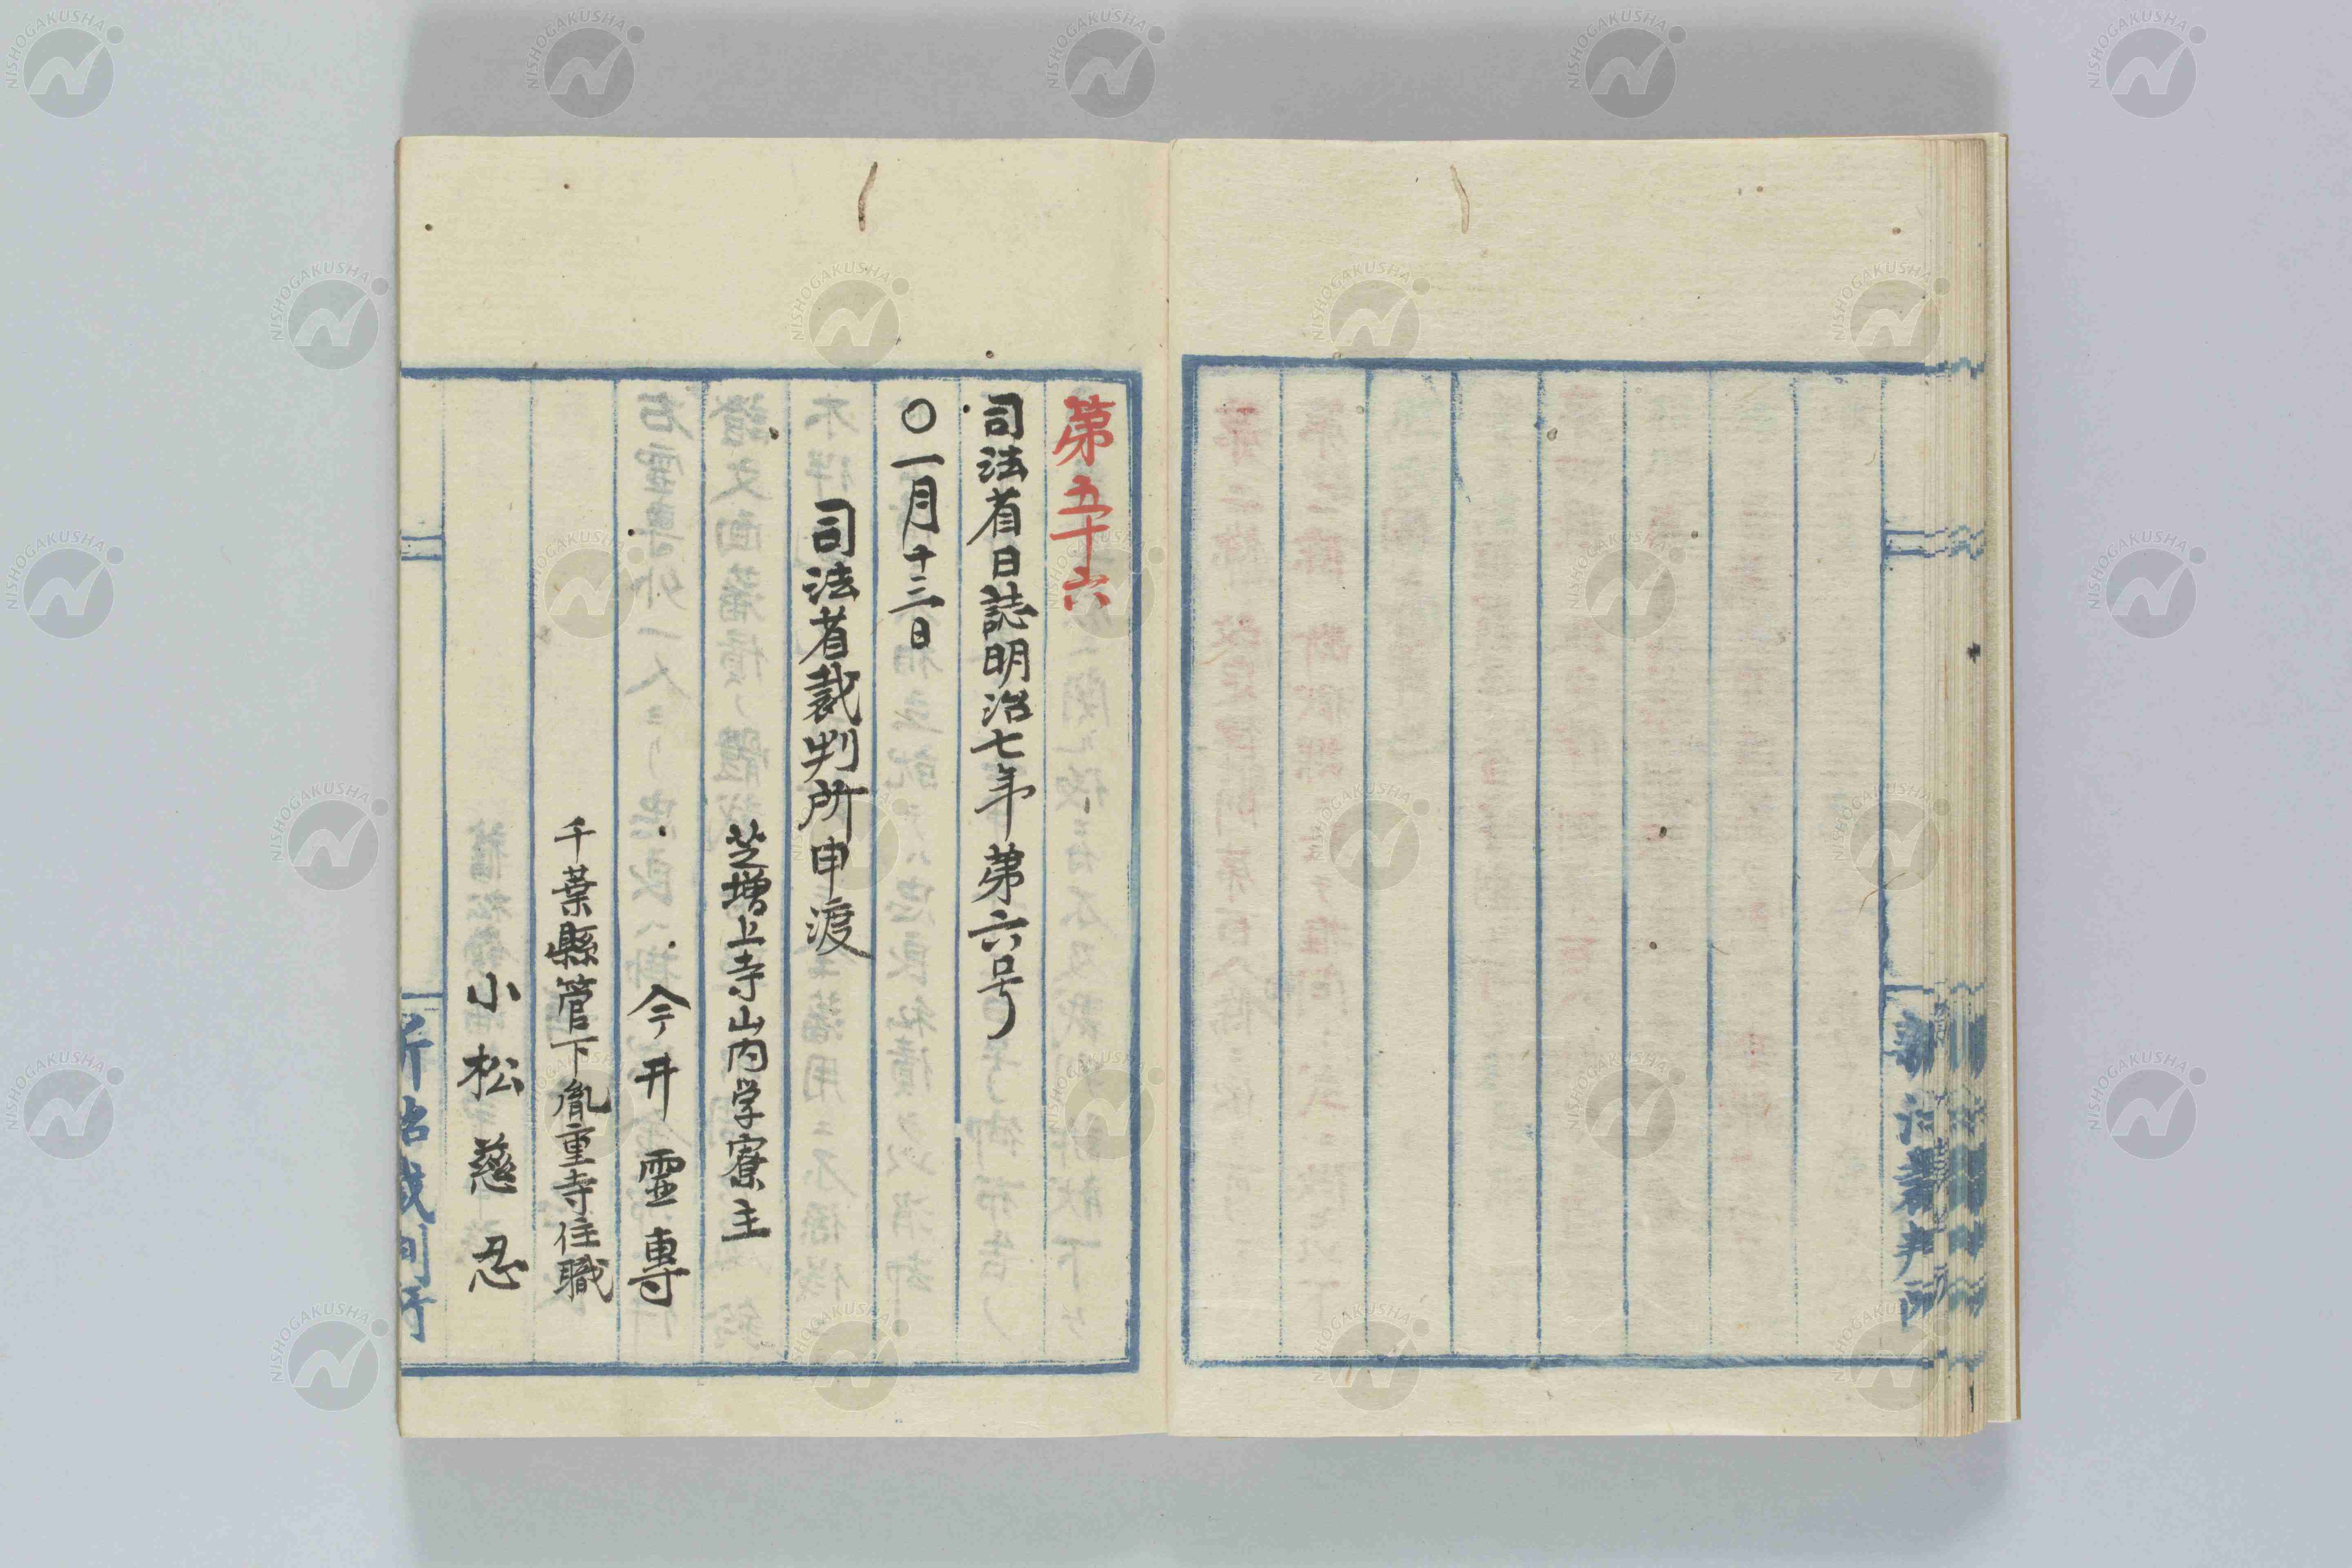 第五十六
司法省日誌明治七年第六号
〇一月十三日
司法省裁判所申渡
芝増上寺山内学寮主
今井霊專
千葉縣管下胤重寺住職
小松慈忍